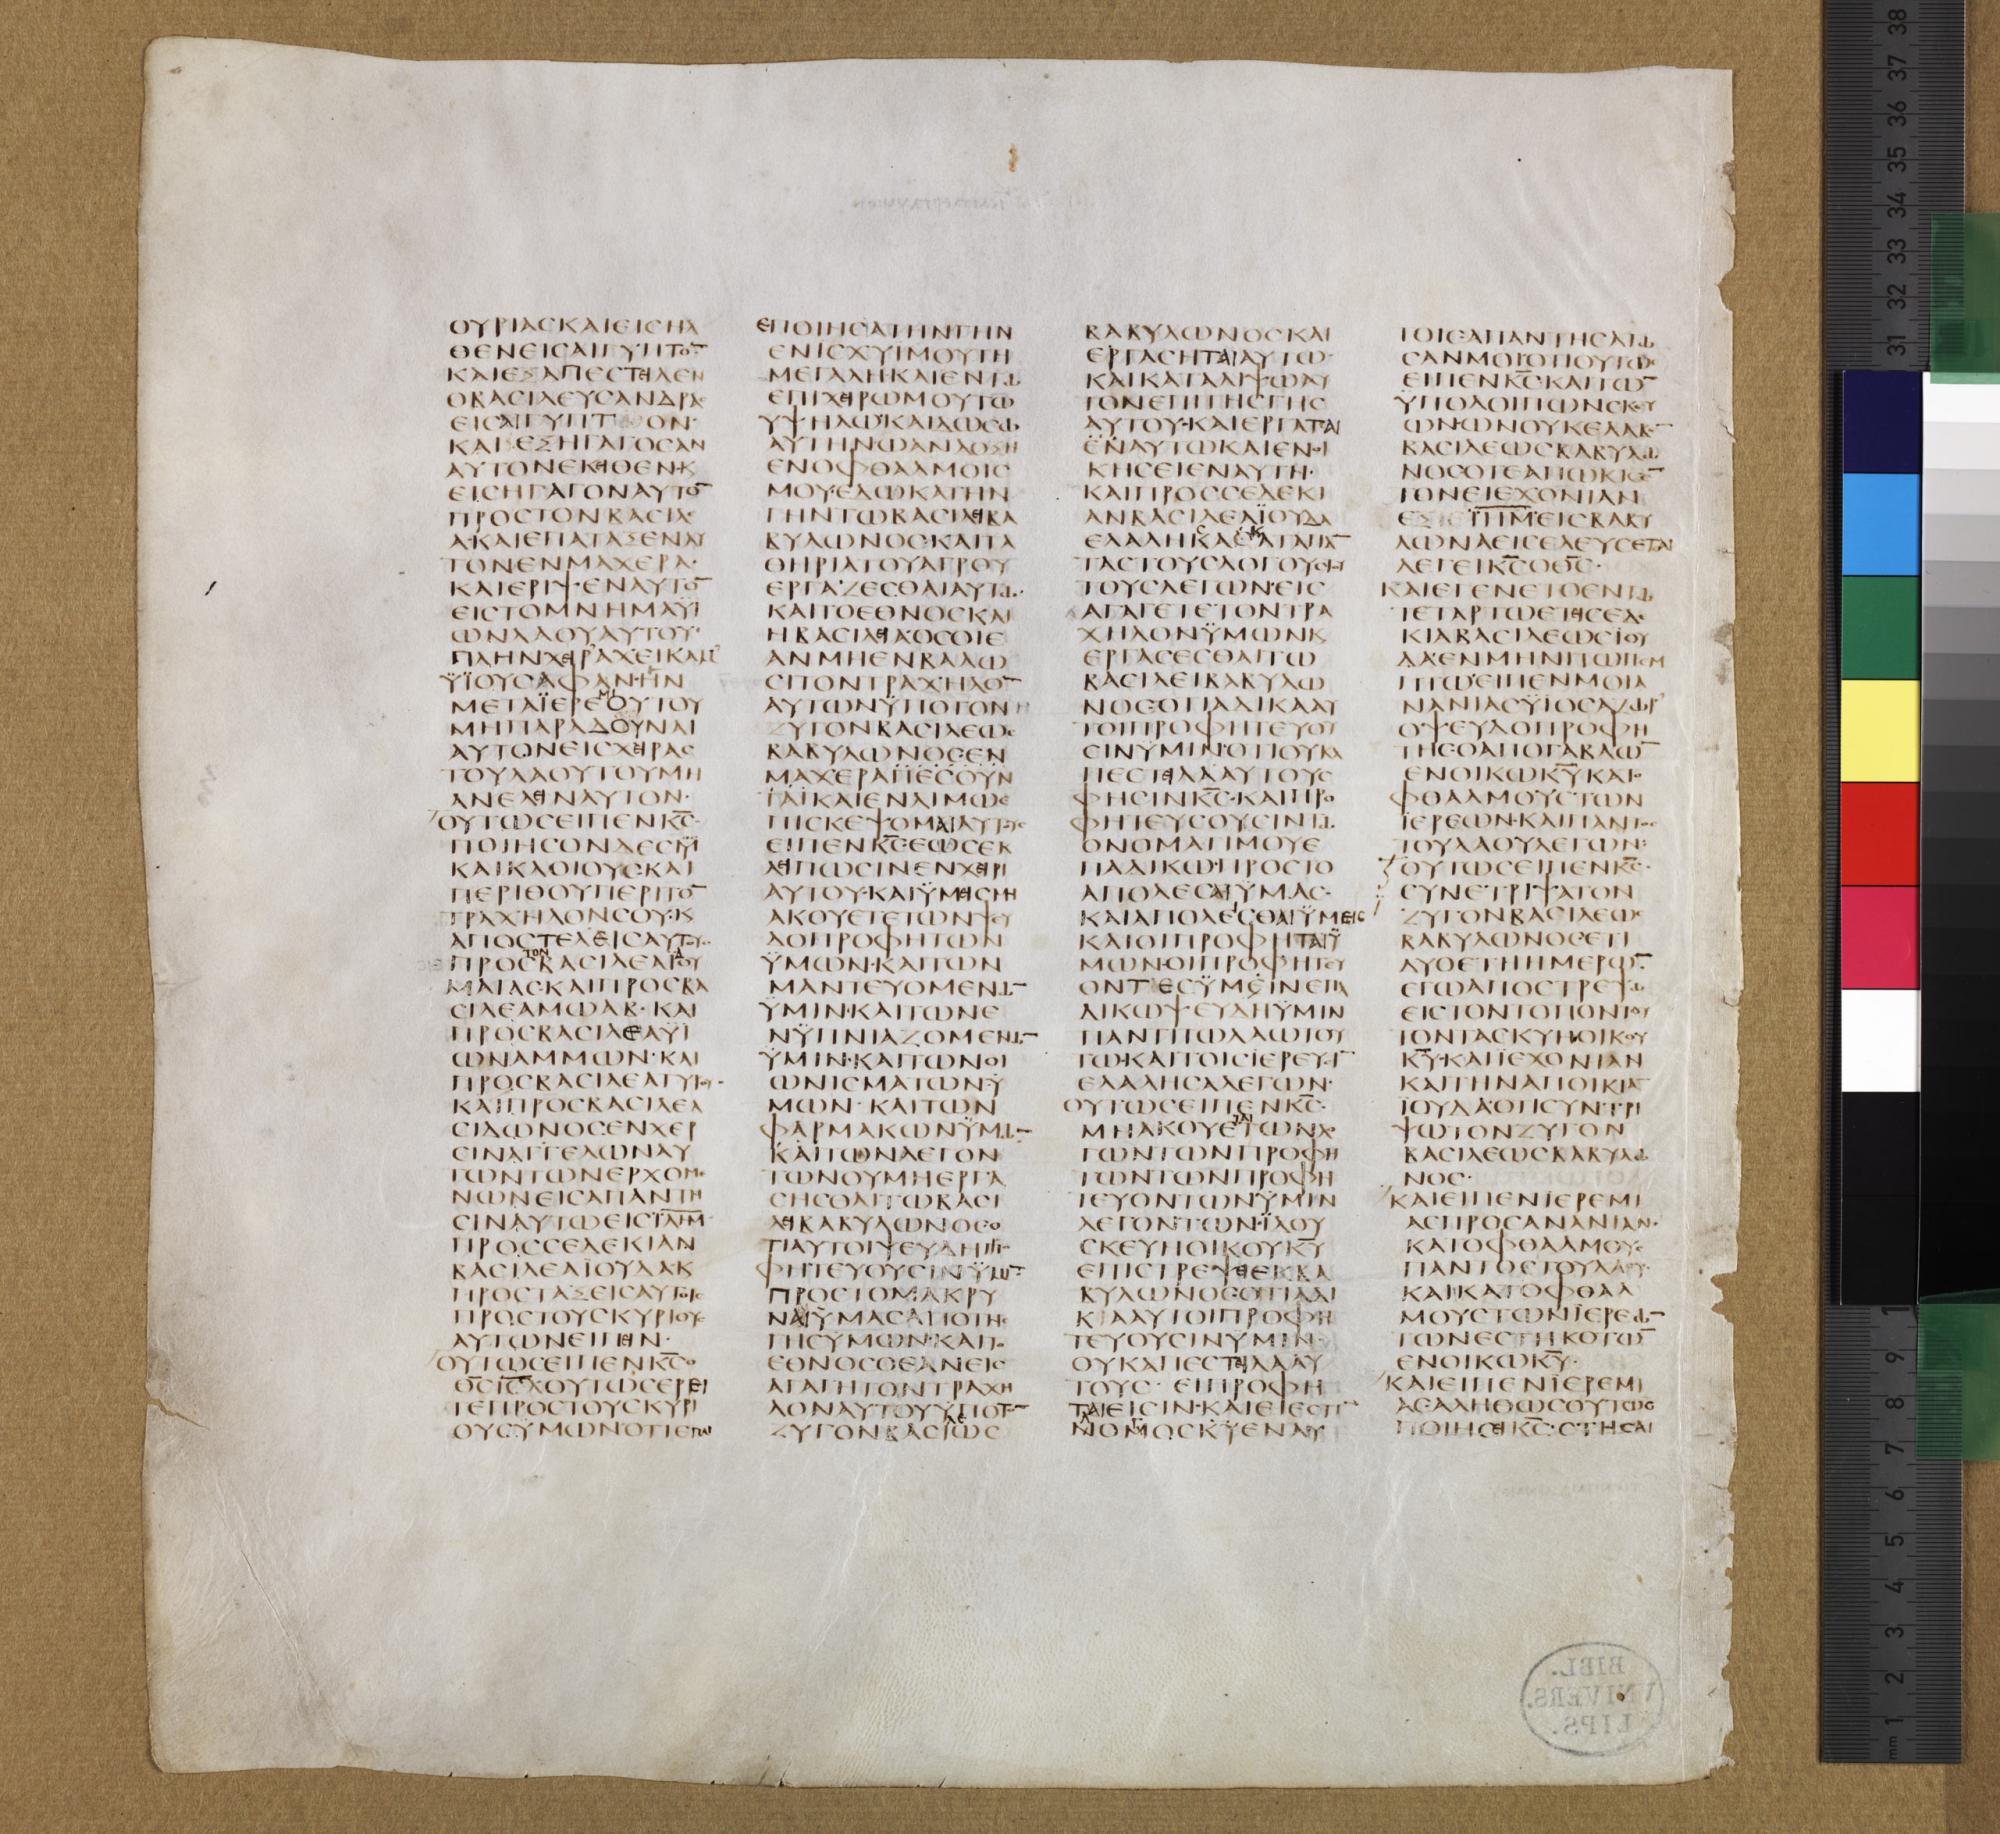 ΟΥΡΙΑϹΚΑΙΕΙϹΗΛ
ΘΕΝΕΙϹΑΙΓΥΠΤΟ̅
ΚΑΙΕΞΑΠΕϹΤΙΛΕΝ
ΟΒΑϹΙΛΕΥϹΑΝΔΡΑ
ΕΙϹΑΙΓΥΠΤΟΝ·
ΚΑΙΕΞΗΓΑΓΟϹΑΝ
ΑΥΤΟΝΕΚΙΘΕΝ·Κ
ΕΙϹΗΓΑΓΟΝΑΥΤΟ̅
ΠΡΟϹΤΟΝΒΑϹΙΛΕ
Α·ΚΑΙΕΠΑΤΑΞΕΝΑΥ
ΤΟΝΕΝΜΑΧΕΡΑ·
ΚΑΙΕΡΙΨΕΝΑΥΤΟ̅
ΕΙϹΤΟΜΝΗΜΑΫΙ
ΩΝΛΑΟΥΑΥΤΟΥ·
ΠΛΗΝΧΕΙΡΑΧΕΙΚΑΜ
ΫΙΟΥϹΑΦΑΝ·ΗΝ
ΜΕΤΑΪΕΡΕΜΙΟΥΤΟΥ
ΜΗΠΑΡΑΔΟΥΝΑΙ
ΑΥΤΟΝΕΙϹΧΙΡΑϹ
ΤΟΥΛΑΟΥΤΟΥΜΗ
ΑΝΕΛΙΝΑΥΤΟΝ·
ΟΥΤΩϹΕΙΠΕΝΚ̅Ϲ̅·
ΠΟΙΗϹΟΝΔΕϹΜ
ΚΑΙΚΛΟΙΟΥϹΚΑΙ
ΠΕΡΙΘΟΥΠΕΡΙΤΟ̅
ΤΡΑΧΗΛΟΝϹΟΥ·Κ
ΑΠΟϹΤΕΛΕΙϹΑΥΤΟΥϹ
ΠΡΟϹΤΟΝΒΑϹΙΛΕΑΪΔΟΥ
ΜΑΙΑϹΚΑΙΠΡΟϹΒΑ
ϹΙΛΕΑΜΩΑΒ·ΚΑΙ
ΠΡΟϹΒΑϹΙΛΕΑΫΙ
ΩΝΑΜΜΩΝ·ΚΑΙ
ΠΡΟϹΒΑϹΙΛΕΑΤΥΡΟΥ·
ΚΑΙΠΡΟϹΒΑϹΙΛΕΑ
ϹΙΔΩΝΟϹΕΝΧΕΡ
ϹΙΝΑΓΓΕΛΩΝΑΥ
ΤΩΝΤΩΝΕΡΧΟΜΕ
ΝΩΝΕΙϹΑΠΑΝΤΗ
ϹΙΝΑΥΤΩΕΙϹΪ̅Λ̅Η̅Μ̅
ΠΡΟϹϹΕΔΕΚΙΑΝ
ΒΑϹΙΛΕΑΪΟΥΔΑ·Κ
ΠΡΟϹΤΑΞΕΙϹΑΥΤΟΙϹ
ΠΡΟϹΤΟΥϹΚΥΡΙΟΥϹ
ΑΥΤΩΝΕΙΠΙΝ·
ΟΥΤΩϹΕΙΠΕΝΚ̅Ϲ̅Ο
Θ̅Ϲ̅Ι̅Ϲ̅Λ̅ΟΥΤΩϹΕΡΕΙ
ΤΕΠΡΟϹΤΟΥϹΚΥΡΙ
ΟΥϹΫΜΩΝΟΤΙΕΓΩ
ΕΠΟΙΗϹΑΤΗΝΓΗΝ
ΕΝΙϹΧΥΪΜΟΥΤΗ
ΜΕΓΑΛΗΚΑΙΕΝΤΩ
ΕΠΙΧΙΡΩΜΟΥΤΩ
ΥΨΗΛΩ·ΚΑΙΔΩϹΩ
ΑΥΤΗΝΩΑΝΔΟΞΗ
ΕΝΟΦΘΑΛΜΟΙϹ
ΜΟΥ·ΕΔΩΚΑΤΗΝ
ΓΗΝΤΩΒΑϹΙΛΙΒΑ
ΒΥΛΩΝΟϹ·ΚΑΙΤΑ
ΘΗΡΙΑΤΟΥΑΓΡΟΥ
ΕΡΓΑΖΕϹΘΑΙΑΥΤΩ·
ΚΑΙΤΟΕΘΝΟϹΚΑΙ
ΗΒΑϹΙΛΙΑΟϹΟΙΕ
ΑΝΜΗΕΝΒΑΛΩ
ϹΙΤΟΝΤΡΑΧΗΛΟ̅
ΑΥΤΩΝΫΠΟΤΟΝ
ΖΥΓΟΝΒΑϹΙΛΕΩϹ
ΒΑΒΥΛΩΝΟϹΕΝ
ΜΑΧΕΡΑΠΕϹΟΥΝ
ΤΑΙΚΑΙΕΝΛΙΜΩΕ
ΠΙϹΚΕΨΟΜΑΙΑΥΤΟΥϹ
ΕΙΠΕΝΚ̅Ϲ̅ΕΩϹΕΚ
ΛΙΠΩϹΙΝΕΝΧΙΡΙ
ΑΥΤΟΥ·ΚΑΙΫΜΙϹΜΗ
ΑΚΟΥΕΤΕΤΩΝΨΕΥ
ΔΟΠΡΟΦΗΤΩΝ
ΫΜΩΝ·ΚΑΙΤΩΝ
ΜΑΝΤΕΥΟΜΕΝΩ̅
ΫΜΙΝ·ΚΑΙΤΩΝΕ
ΝΫΠΝΙΑΖΟΜΕΝΩ̅
ΫΜΙΝ·ΚΑΙΤΩΝΟΙ
ΩΝΙϹΜΑΤΩΝΫ
ΜΩΝ·ΚΑΙΤΩΝ
ΦΑΡΜΑΚΩΝΫΜΩ̅
ΚΑΙΤΩΝΛΕΓΟΝ
ΤΩΝΟΥΜΗΕΡΓΑ
ϹΗϹΘΑΙΤΩΒΑϹΙ
ΛΙΒΑΒΥΛΩΝΟϹΟ
ΤΙΑΥΤΟΙΨΕΥΔΗΠΡΟ
ΦΗΤΕΥΟΥϹΙΝΫΜΙ̅
ΠΡΟϹΤΟΜΑΚΡΥ
ΝΑΙΫΜΑϹΑΠΟΤΗϹ
ΓΗϹΫΜΩΝ·ΚΑΙΤΟ
ΕΘΝΟϹΟΕΑΝΕΙϹ
ΑΓΑΓΗΤΟΝΤΡΑΧΗ
ΛΟΝΑΥΤΟΥΫΠΟΤΟ̅
ΖΥΓΟΝΒΑϹΙΛΕΩϹ
ΒΑΒΥΛΩΝΟϹΚΑΙ
ΕΡΓΑϹΗΤΑΙΑΥΤΩ·
ΚΑΙΚΑΤΑΛΙΨΩΑΥ
ΤΟΝΕΠΙΤΗϹΓΗϹ
ΑΥΤΟΥ·ΚΑΙΕΡΓΑΤΑΙ
ΕΝΑΥΤΩΚΑΙΕΝΟΙ
ΚΗϹΕΙΕΝΑΥΤΗ·
ΚΑΙΠΡΟϹϹΕΔΕΚΙ
ΑΝΒΑϹΙΛΕΑΪΟΥΔΑ
ΕΛΑΛΗϹΑΚΑΤΑΠΑ̅
ΤΑϹΤΟΥϹΛΟΓΟΥϹΤΟΥ
ΤΟΥϹΛΕΓΩΝ·ΕΙϹ
ΑΓΑΓΕΤΕΤΟΝΤΡΑ
ΧΗΛΟΝΫΜΩΝΚ
ΕΡΓΑϹΕϹΘΑΙΤΩ
ΒΑϹΙΛΕΙΒΑΒΥΛΩ
ΝΟϹΟΤΙΑΔΙΚΑΑΥ
ΤΟΙΠΡΟΦΗΤΕΥΟΥ
ϹΙΝΫΜΙΝ·ΟΤΙΟΥΚΑ
ΠΕϹΤΙΛΑΑΥΤΟΥϹ
ΦΗϹΙΝΚ̅Ϲ̅·ΚΑΙΠΡΟ
ΦΗΤΕΥΟΥϹΙΝΤΩ
ΟΝΟΜΑΤΙΜΟΥΕ
ΠΑΔΙΚΩ·ΠΡΟϹΤΟ
ΑΠΟΛΕϹΑΙΫΜΑϹ·
ΚΑΙΑΠΟΛΕΙϹΘΑΙΫΜΕΙϹ
ΚΑΙΟΙΠΡΟΦΗΤΑΙΫ
ΜΩΝ·ΟΙΠΡΟΦΗΤΕΥ
ΟΝΤΕϹΫΜΙΝΕΠΑ
ΔΙΚΩΨΕΥΔΗΫΜΙΝ
ΠΑΝΤΙΤΩΛΑΩΤΟΥ
ΤΩ·ΚΑΙΤΟΙϹΪΕΡΕΥϹΙ̅
ΕΛΑΛΗϹΑΛΕΓΩΝ·
ΟΥΤΩϹΕΙΠΕΝΚ̅Ϲ̅·
ΜΗΑΚΟΥΕΤΑΙΤΩΝΛΟ
ΓΩΝΤΩΝΠΡΟΦΗ
ΤΩΝΤΩΝΠΡΟΦΗ
ΤΕΥΟΝΤΩΝΫΜΙΝ
ΛΕΓΟΝΤΩΝ·ΪΔΟΥ
ϹΚΕΥΗΟΙΚΟΥΚ̅Υ̅
ΕΠΙϹΤΡΕΨΙΕΚΒΑ
ΒΥΛΩΝΟϹΟΤΙΑΔΙ
ΚΑΑΥΤΟΙΠΡΟΦΗ
ΤΕΥΟΥϹΙΝΫΜΙΝ·
ΟΥΚΑΠΕϹΤΙΛΑΑΥ
ΤΟΥϹ·ΕΙΠΡΟΦΗ
ΤΑΙΕΙϹΙΝ·ΚΑΙΕΙΕϹΤΙ̅
ΛΟΓΟϹΚ̅Υ̅ΕΝΑΥ
ΤΟΙϹΑΠΑΝΤΗϹΑΤΩ
ϹΑΝΜΟΙΟΤΙΟΥΤΩϹ
ΕΙΠΕΝΚ̅Ϲ̅ΚΑΙΤΩ̅
ΫΠΟΛΟΙΠΩΝϹΚΕΥ
ΩΝ·ΩΝΟΥΚΕΛΑΒΕ̅
ΒΑϹΙΛΕΩϹΒΑΒΥΛΩ
ΝΟϹΟΤΕΑΠΩΚΙϹΕ̅
ΤΟΝΕΙΕΧΟΝΙΑΝ
ΕΞΙ̅Λ̅Η̅Μ̅ΕΙϹΒΑΒΥ
ΛΩΝΑΕΙϹΕΛΕΥϹΕΤΑΙ
ΛΕΓΕΙΚ̅Ϲ̅ΟΘ̅Ϲ̅·
ΚΑΙΕΓΕΝΕΤΟΕΝΤΩ
ΤΕΤΑΡΤΩΕΤΙϹΕΔΕ
ΚΙΑΒΑϹΙΛΕΩϹΪΟΥ
ΔΑ·ΕΝΜΗΝΙΤΩΠΕΜ
ΠΤΩ·ΕΙΠΕΝΜΟΙΑ
ΝΑΝΙΑϹΫΙΟϹΑΖΩΡ
ΟΨΕΥΔΟΠΡΟΦΗ
ΤΗϹΟΑΠΟΓΑΒΑΩ̅
ΕΝΟΙΚΩΚ̅Υ̅ΚΑΤΟ
ΦΘΑΛΜΟΥϹΤΩΝ
ΪΕΡΕΩΝ·ΚΑΙΠΑΝΤΟϹ
ΤΟΥΛΑΟΥΛΕΓΩΝ·
ΟΥΤΩϹΕΙΠΕΝΚ̅Ϲ̅·
ϹΥΝΕΤΡΙΨΑΤΟΝ
ΖΥΓΟΝΒΑϹΙΛΕΩϹ
ΒΑΒΥΛΩΝΟϹΕΤΙ
ΔΥΟΕΤΗΗΜΕΡΩ̅
ΕΓΩΑΠΟϹΤΡΕΨΩ
ΕΙϹΤΟΝΤΟΠΟΝΤΟΥ
ΤΟΝΤΑϹΚΥΗΟΙΚΟΥ
Κ̅Υ̅·ΚΑΙΪΕΧΟΝΙΑΝ
ΚΑΙΤΗΝΑΠΟΙΚΙΑ̅
ΪΟΥΔΑΟΤΙϹΥΝΤΡΙ
ΨΩΤΟΝΖΥΓΟΝ
ΒΑϹΙΛΕΩϹΒΑΒΥΛΩ
ΝΟϹ·
ΚΑΙΕΙΠΕΝΪΕΡΕΜΙ
ΑϹΠΡΟϹΑΝΑΝΙΑΝ·
ΚΑΤΟΦΘΑΛΜΟΥϹ
ΠΑΝΤΟϹΤΟΥΛΑΟΥ·
ΚΑΙΚΑΤΟΦΘΑΛ
ΜΟΥϹΤΩΝΪΕΡΕΩ̅
ΤΩΝΕϹΤΗΚΟΤΩ̅
ΕΝΟΙΚΩΚ̅Υ̅·
ΚΑΙΕΙΠΕΝΪΕΡΕΜΙ
ΑϹΑΛΗΘΩϹΟΥΤΩϹ
ΠΟΙΗϹΙΚ̅Ϲ̅·ϹΤΗϹΑΙ
BIBL.
VNIVERS.
LIPS.